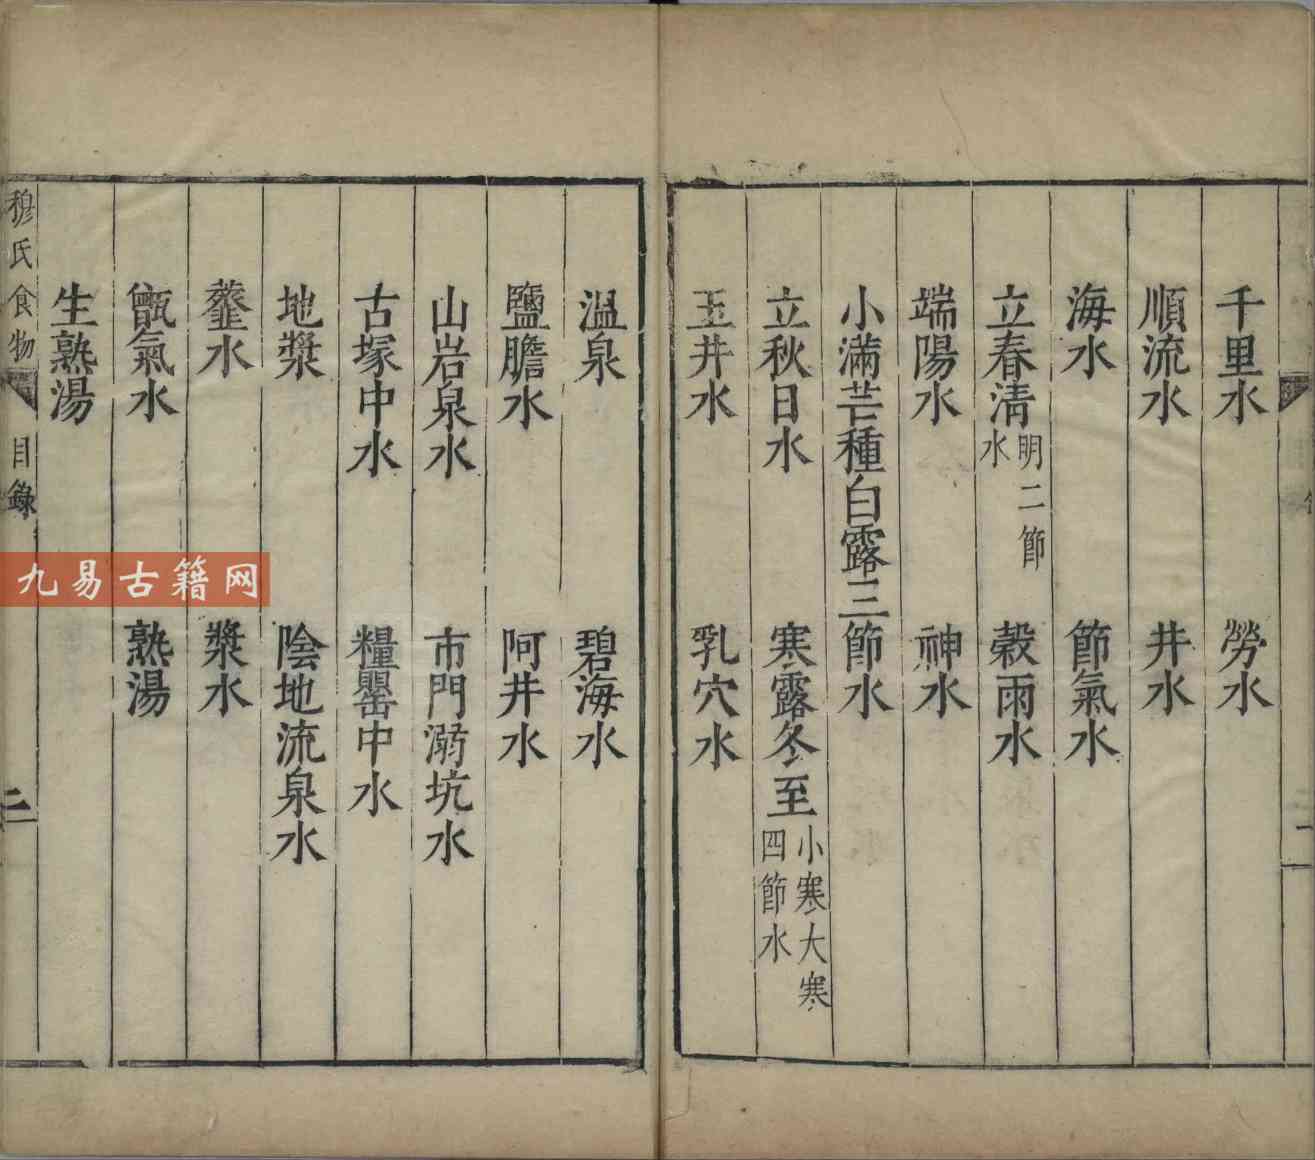 千里水 勞水
順流水 井水
海水 節氣水
立春清明二節水 穀雨水
端陽水 神水
小滿芒種白露三節水
立秋日水 寒露冬至小寒大寒四節水
玉井水 乳穴水
溫泉 碧海水
鹽膽水 阿井水
山岩泉水 市門溺坑水
古塚中水 糧罌中水
地漿 陰地流泉水
虀水 漿水
甑氣水 熟湯
生熟湯
穆氏食物 目錄 二
九易古籍网